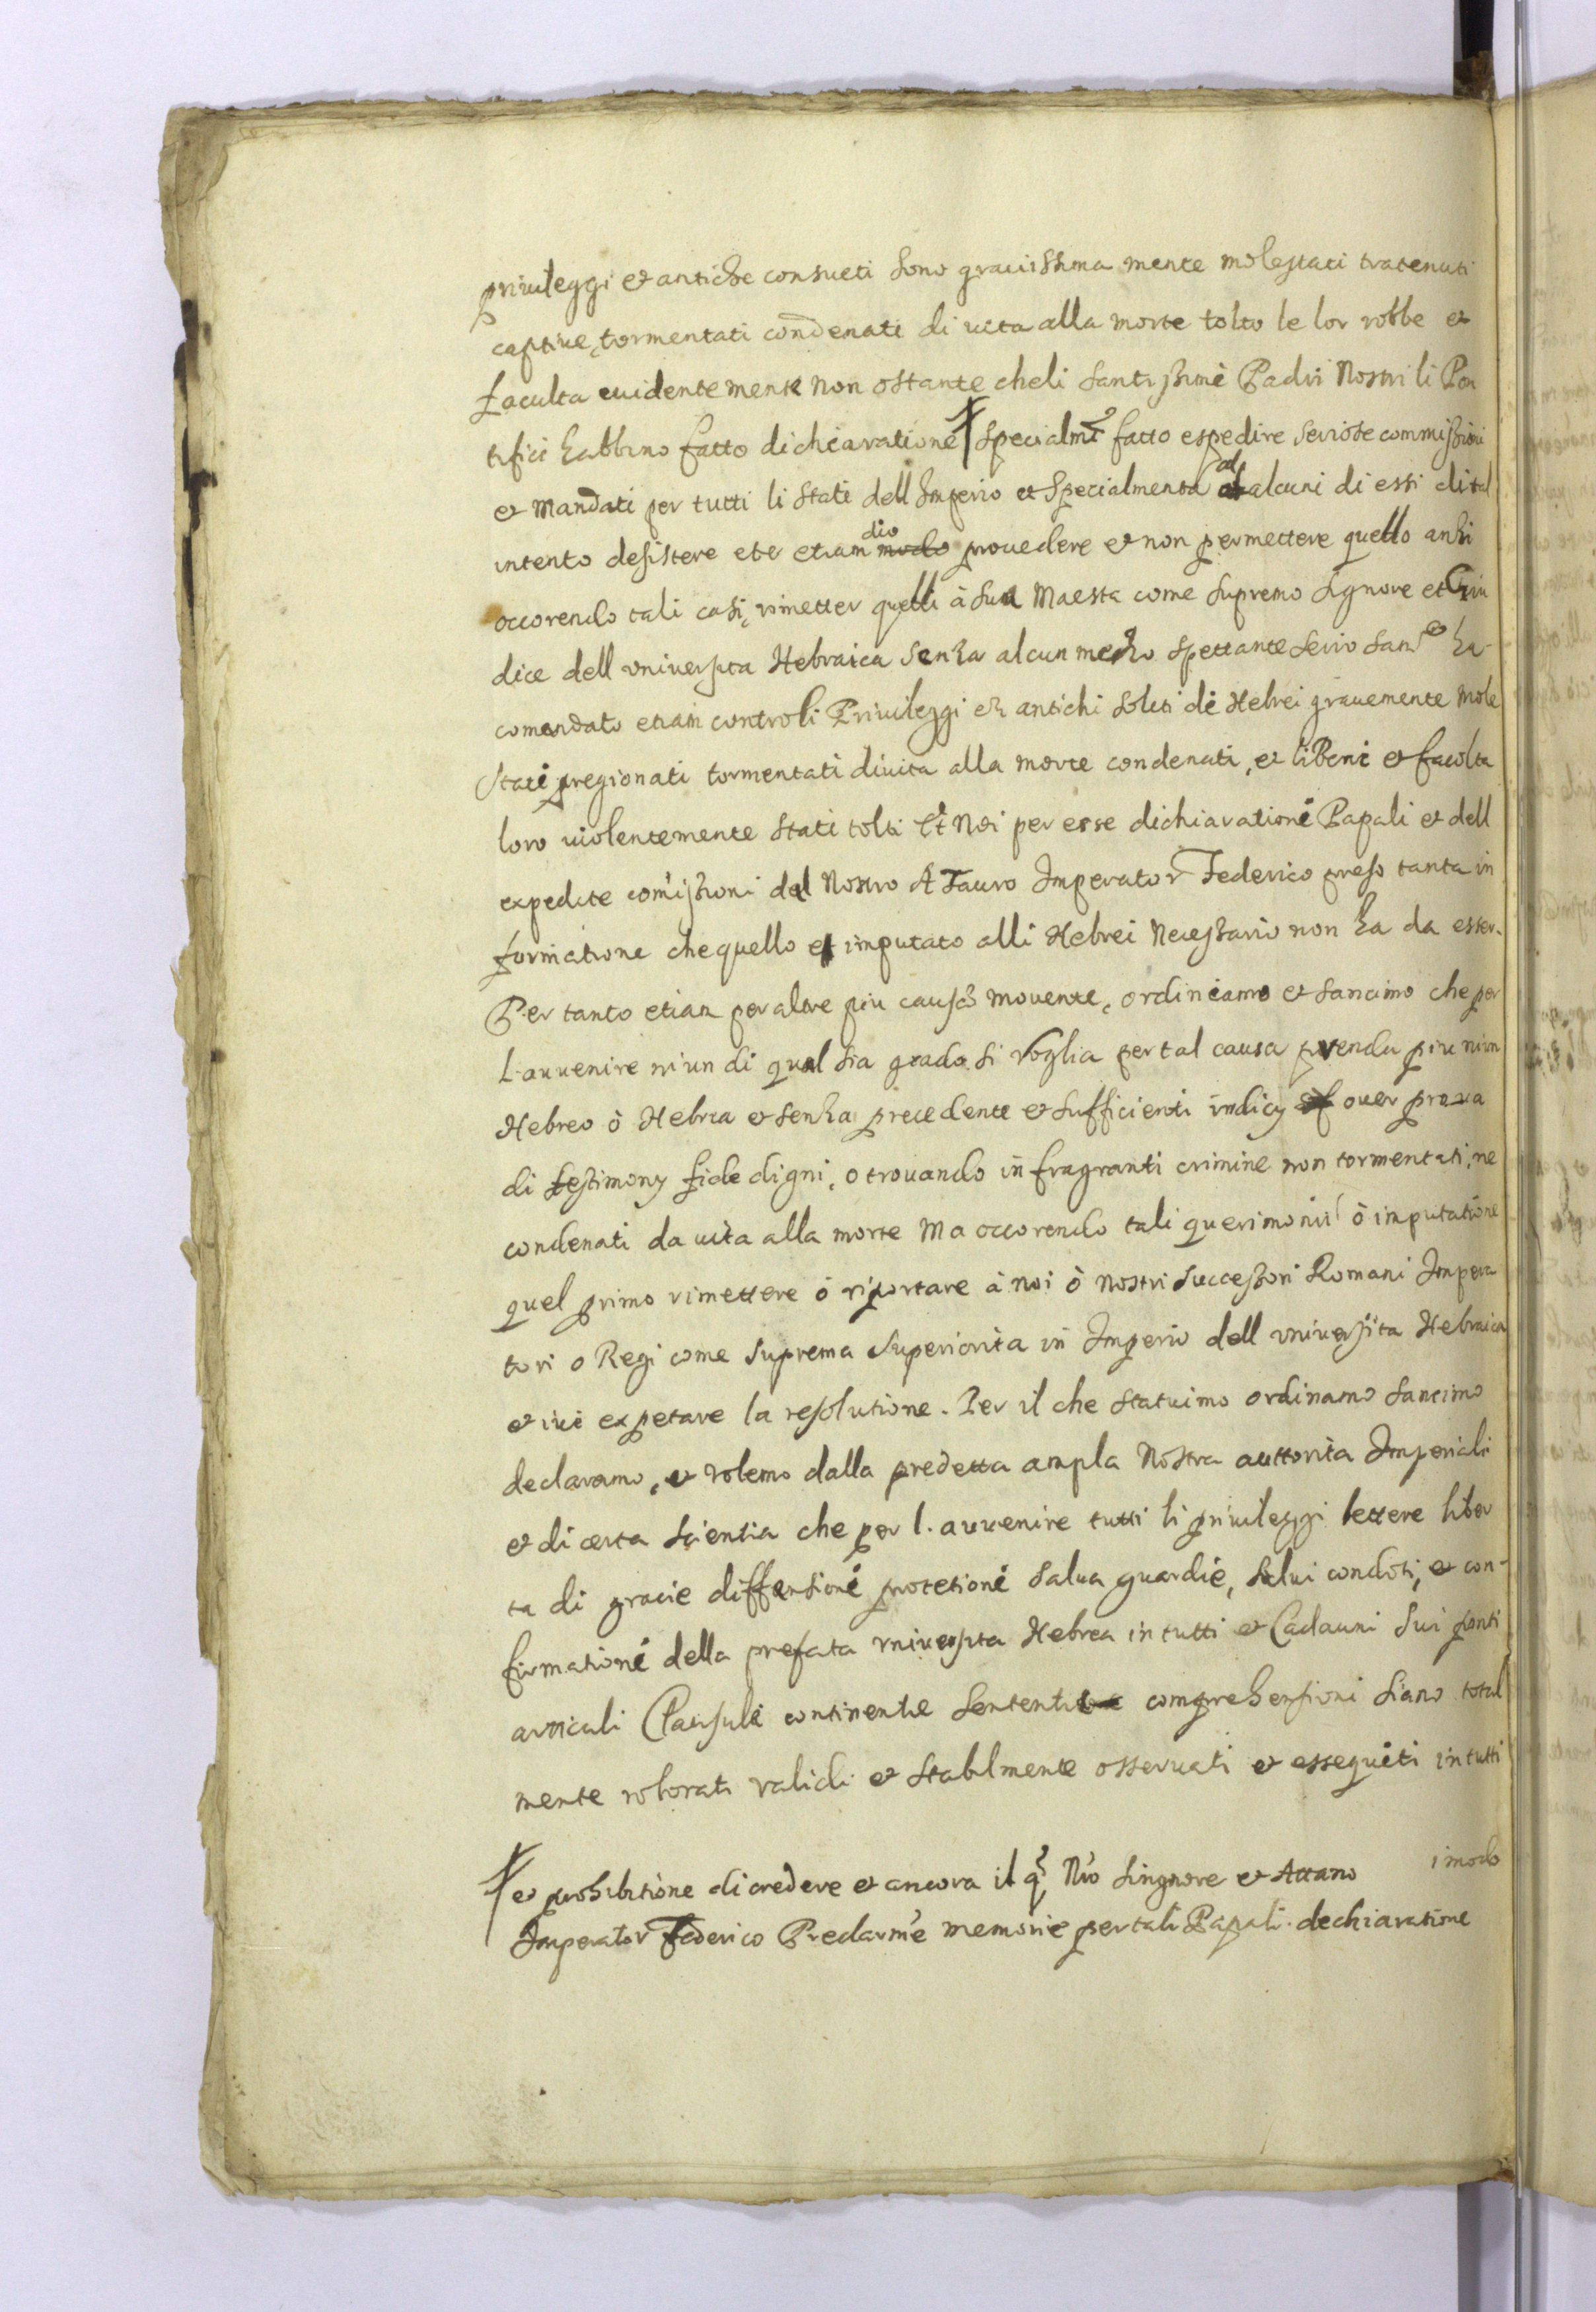 priuileggi et antiche consueti sono grauissima mente molestati tratenuti
captiue, tormentati condenati di uita alla morte tolto le lor robbe et
faculta euidentemente non ostante cheli santissimi Padri Nostri li Pon
tifici habbino fatto dichiaratione specialmte fatto espedire seriose commissioni
et Mandati per tutti li stati dell Imperio et specialmente ad alcuni di essi di tal
intento desistere etc etiam dio prouedere et non permettere quello anzi
occorendo tali casi, rimetter quelli à sua Maesta come supremo signore et Giu
dice dell uniuersita Hebraica senza alcun mezzo spettante ha
comandato etiam contro li Priuileggi et antichi soliti de Hebrei grauemente mole
stati pregionati tormentati di uita alla morte condenati, et li Beni et facolta
loro uiolentemente stati tolti Et Noi per esse dichiarationi Papali et dell
expedite comissioni del Nostro A Tauro Imperator Federico preso tanta in
formatione che quello è imputato alli Hebrei Necessario non ha da esser.
Per tanto etiam per altre piu cause mouente, ordiniamo et sancimo che per
L'auuenire niun di qual sia grado si voglia per tal causa prenda piu niun
Hebreo ò Hebrea et senza precedente et sufficienti indicy ouer proua
di testimony fide digni, o trouando in fragranti crimine non tormentati, ne
condenati da uita alla morte Ma occorendo tali querimonii ò imputatione
quel primo rimettere ò riportare à noi ò nostri successori Romani Impera
tori o Regi come suprema superiorita in Imperio dell uniuersita Hebraica
et iui expetare la resolutione. Per il che statuimo ordinamo sancimo
declaramo, et volemo dalla predetta ampla Nostra auttorita Imperiali
et di certa scientia che per l'auuenire tutti li priuileggi lettere liber
ta di gracie diffensioni protetioni salua guardie, salui condoti, et con-
firmationi della prefata uniuersita Hebrea in tutti et Cadauni sui ponti
articuli Clausule continentie sententie comprehensioni siano total
mente roborati validi et stabilmente osseruati et essequiti in tutti
i modo
et prohibitione di credere et ancora il q. Nro singnore et Attano
Imperator Federico Preclarme memorie per tali Papali dechiaratione